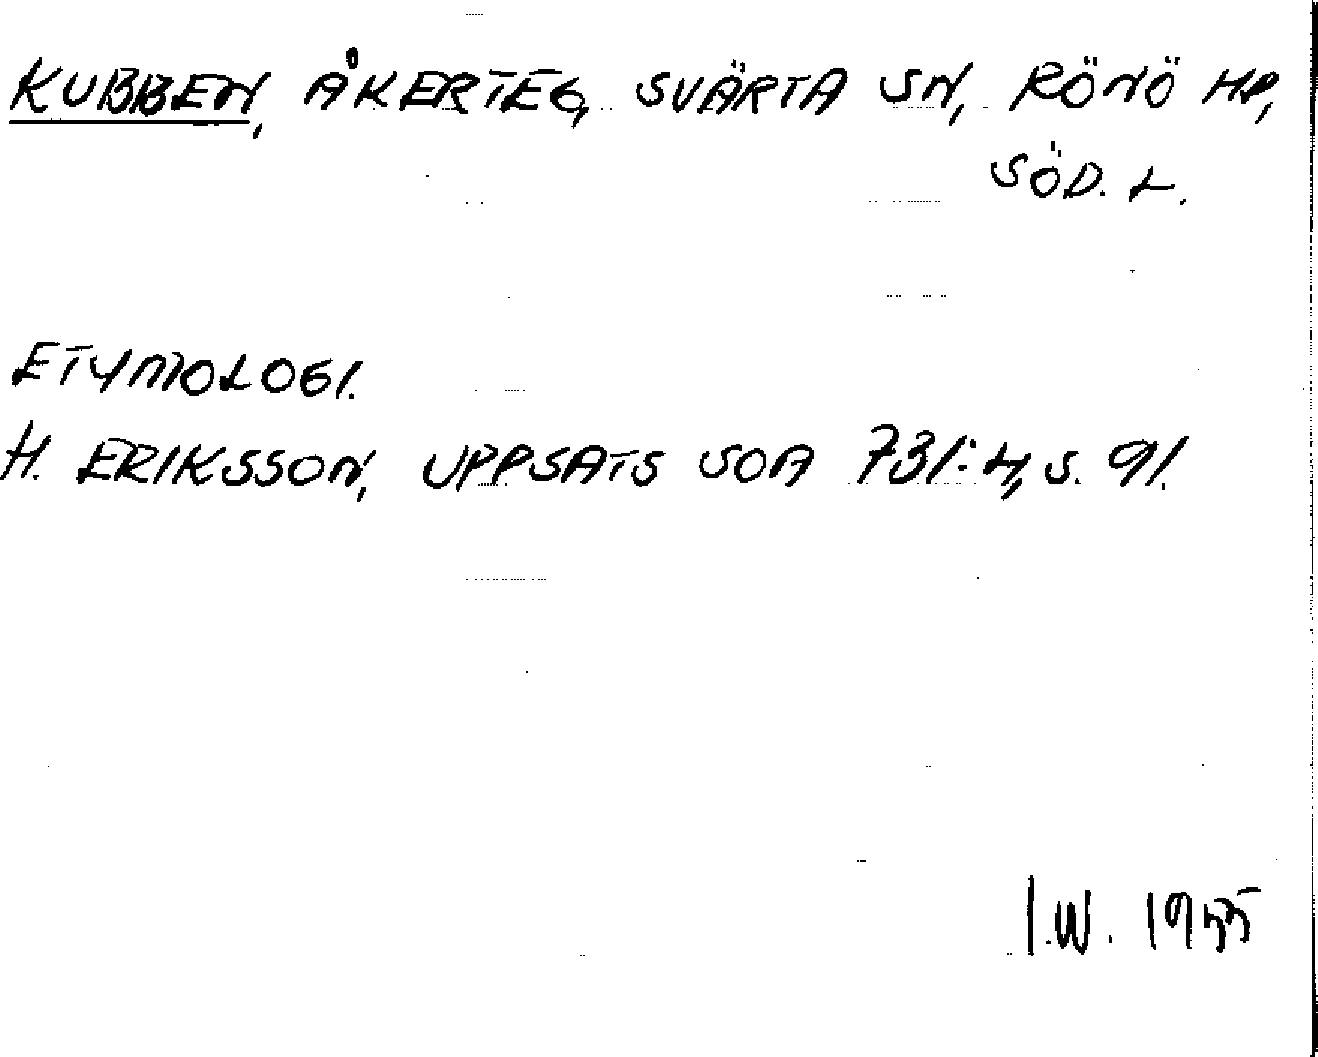 KUBBEN, ÅKERTEG, SVÄRTA SN, RÖNÖ HD,
SÖD. L.
ETYMOLOGI.
H. ERIKSSON, UPPSATS SOA 731:4, S. 91.
I.W. 1955